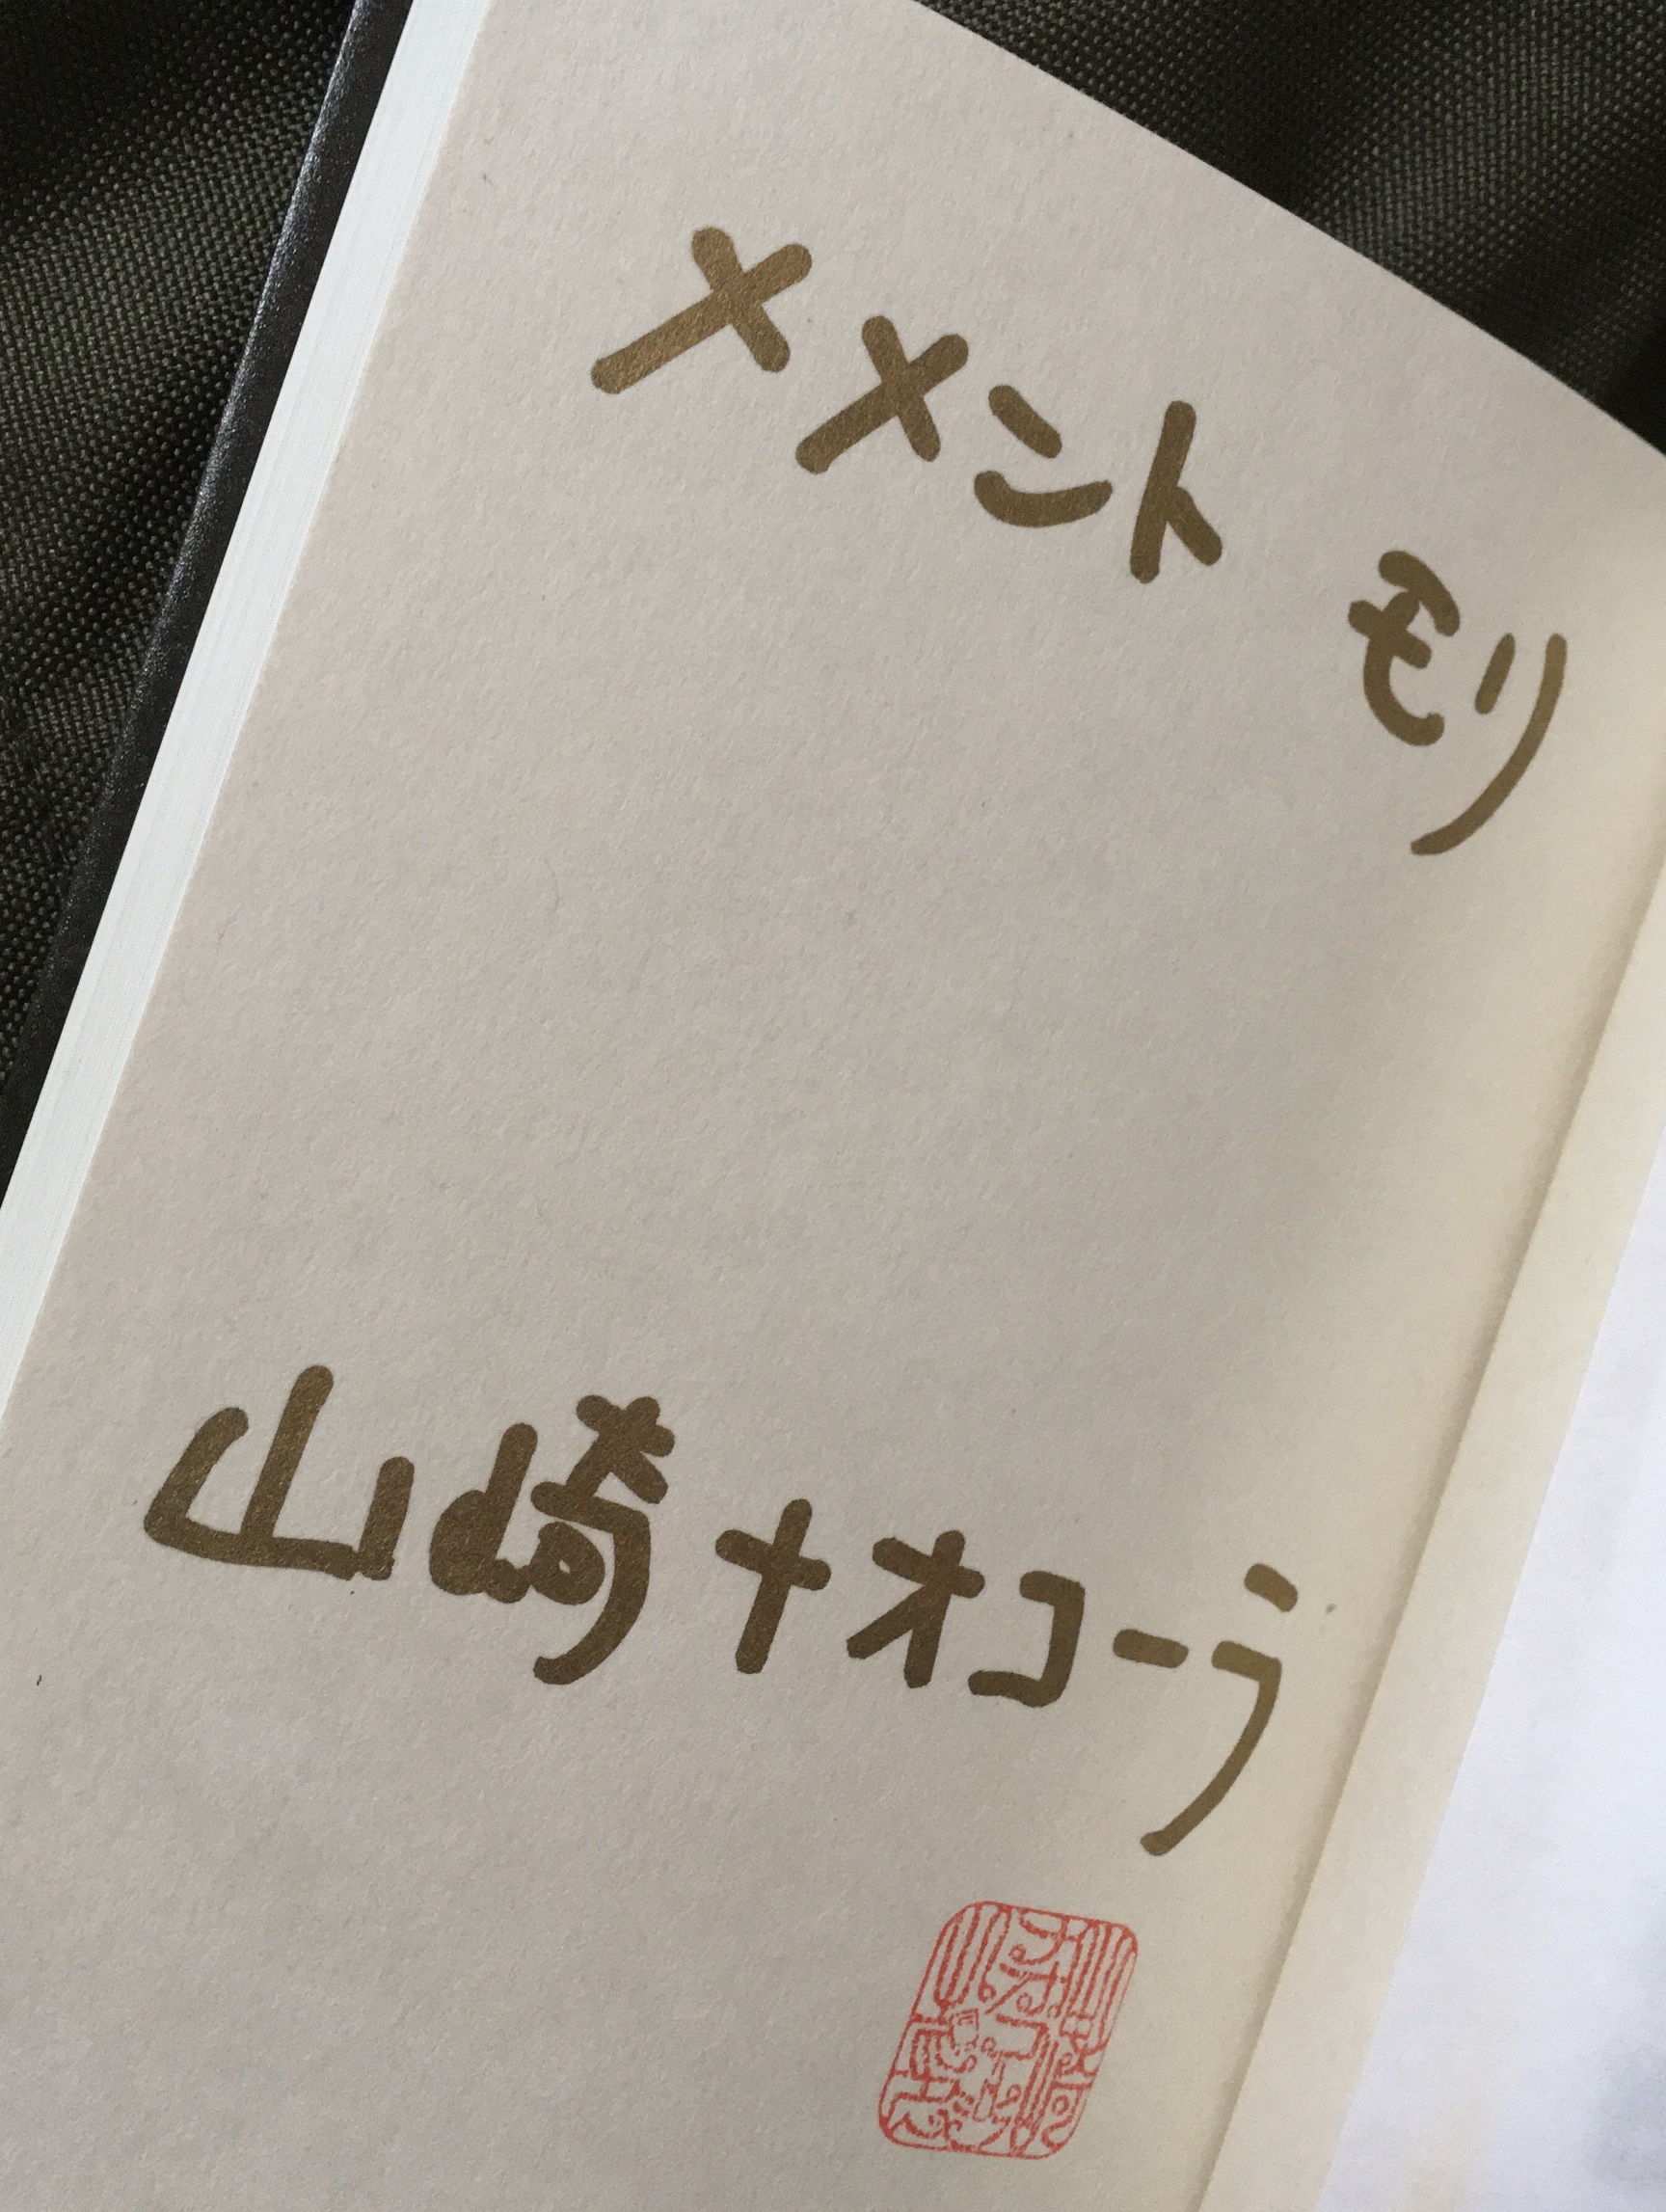 メメント モリ
山崎ナオコーラ